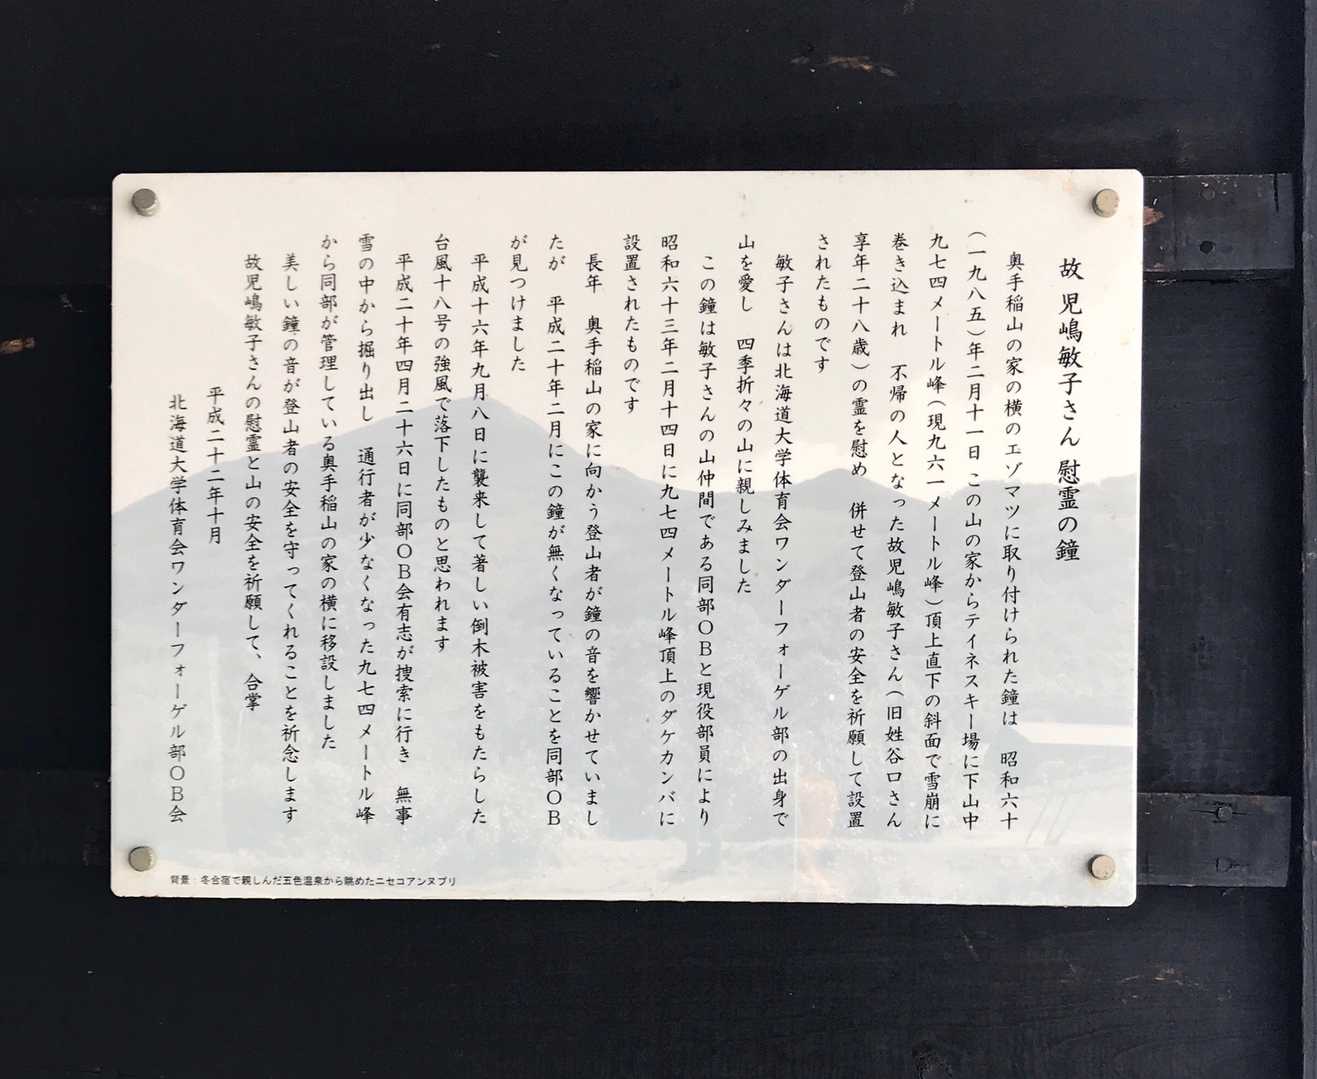 故 児嶋敏子さん 慰霊の鐘
奥手稲山の家の横のエゾマツに取り付けられた鐘は 昭和六十
(一九八五)年二月十一日 この山の家からテイネスキー場に下山中
九七四メートル峰(現九六一メートル峰)頂上直下の斜面で雪崩に
巻き込まれ 不帰の人となった故児嶋敏子さん(旧姓谷口さん
享年二十八歳)の霊を慰め 併せて登山者の安全を祈願して設置
されたものです
敏子さんは北海道大学体育会ワンダーフォーゲル部の出身で
山を愛し 四季折々の山に親しみました
この鐘は敏子さんの山仲間である同部OBと現役部員により
昭和六十三年二月十四日に九七四メートル峰頂上のダケカンバに
設置されたものです
長年 奥手稲山の家に向かう登山者が鐘の音を響かせていまし
たが 平成二十年二月にこの鐘が無くなっていることを同部OB
が見つけました
平成十六年九月八日に襲来して著しい倒木被害をもたらした
台風十八号の強風で落下したものと思われます
平成二十年四月二十六日に同部OB会有志が捜索に行き 無事
雪の中から掘り出し 通行者が少なくなった九七四メートル峰
から同部が管理している奥手稲山の家の横に移設しました
美しい鐘の音が登山者の安全を守ってくれることを祈念します
故児嶋敏子さんの慰霊と山の安全を祈願して、合掌
平成二十二年十月
北海道大学体育会ワンダーフォーゲル部OB会
背景：冬合宿で親しんだ五色温泉から眺めたニセコアンヌプリ